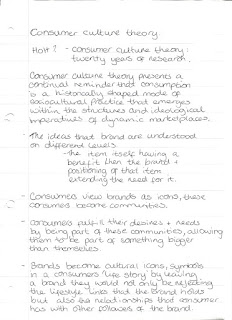 Consumer culture theory.
Holt? - consumer culture theory:
twenty years of research.
Consumer culture theory presents a
continual reminder that consumption
is a historically shaped mode of
sociocultural practice that emerges
within the structures and ideological
imperatives of dynamic marketplaces.
The ideas that brand are understood
on different levels
- the item itself having a
benefit then the brand +
positioning of that item
extending the need for it.
- Consumers view brands as icons, these
consumers become communities.
- Consumers fulfil their desires + needs
by being part of these communities, allowing
them to be part of something bigger
than themselves.
- Brands become cultural icons, symbols
in a consumers life story by leaving
a brand they would not only be rejecting
the lifestyle links that the brand holds
but also the relationships that consumer
has with other followers of the brand.